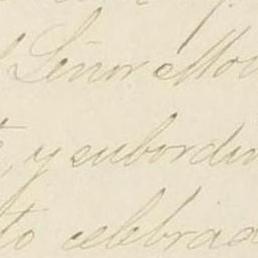 Señor Mo
, y subordin
to celebrad